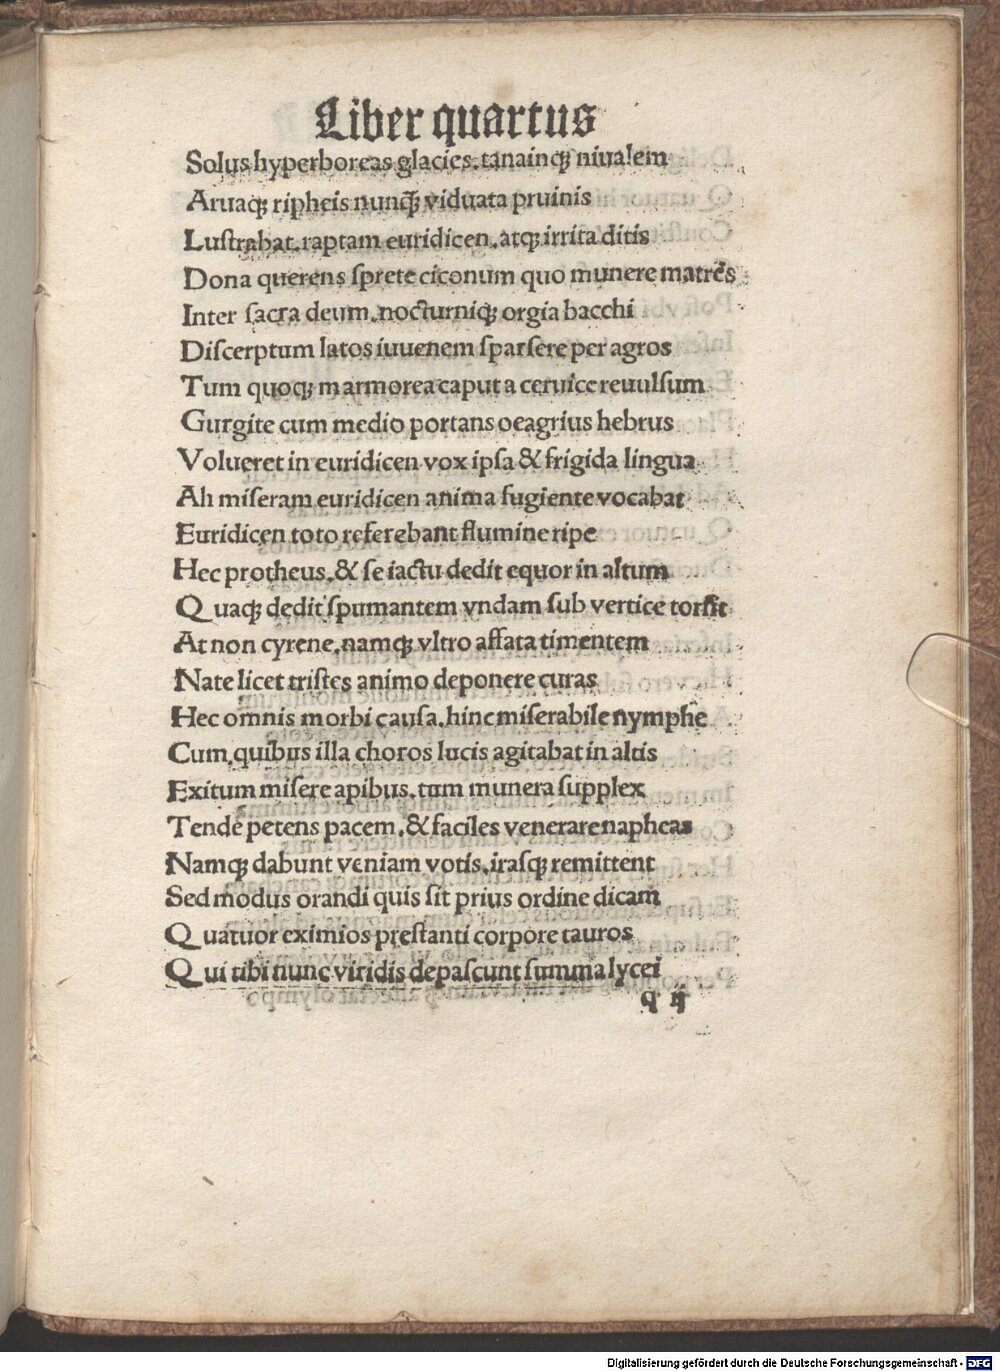 Liber quartus
Solus hyperboreas glacies. tanainqꝫ niualem
Aruaqꝫ ripheis nunqꝫ̃ viduata pruinis
Luſtrabat. raptam euridicen. atqꝫ irrita ditis
Dona querens ſprete ciconum quo munere matres
Inter ſacra deum. nocturniqꝫ orgia bacchi
Diſcerptum latos iuuenem ſparſere per agros
Tum quoqꝫ marmorea caput a ceruice reuulſum
Gurgite cum medio portans oeagrius hebrus
Volueret in euridicen vox ipſa & frigida lingua
Ah miſeram euridicen anima fugiente vocabat
Euridicen toto referebant flumine ripe
Hec protheus. & ſe iactu dedit equor in altum
Quaqꝫ dedit ſpumantem vndam ſub vertice torſit
At non cyrene. namqꝫ vltro affata timentem
Nate licet triſtes animo deponere curas
Hec omnis morbi cauſa. hinc miſerabile nymphe
Cum quibus illa choros lucis agitabat in altis
Exitum miſere apibus. tum munera ſupplex
Tende petens pacem. & faciles venerare napheas
Namqꝫ dabunt veniam votis. iraſqꝫ remittent
Sed modus orandi quis ſit prius ordine dicam
Quatuor eximios preſtanti corpore tauros
Qui tibi nunc viridis depaſcunt ſumma lycei
q ij
Digitalisierung gefördert durch die Deutsche Forschungsgemeinschaft - DFG